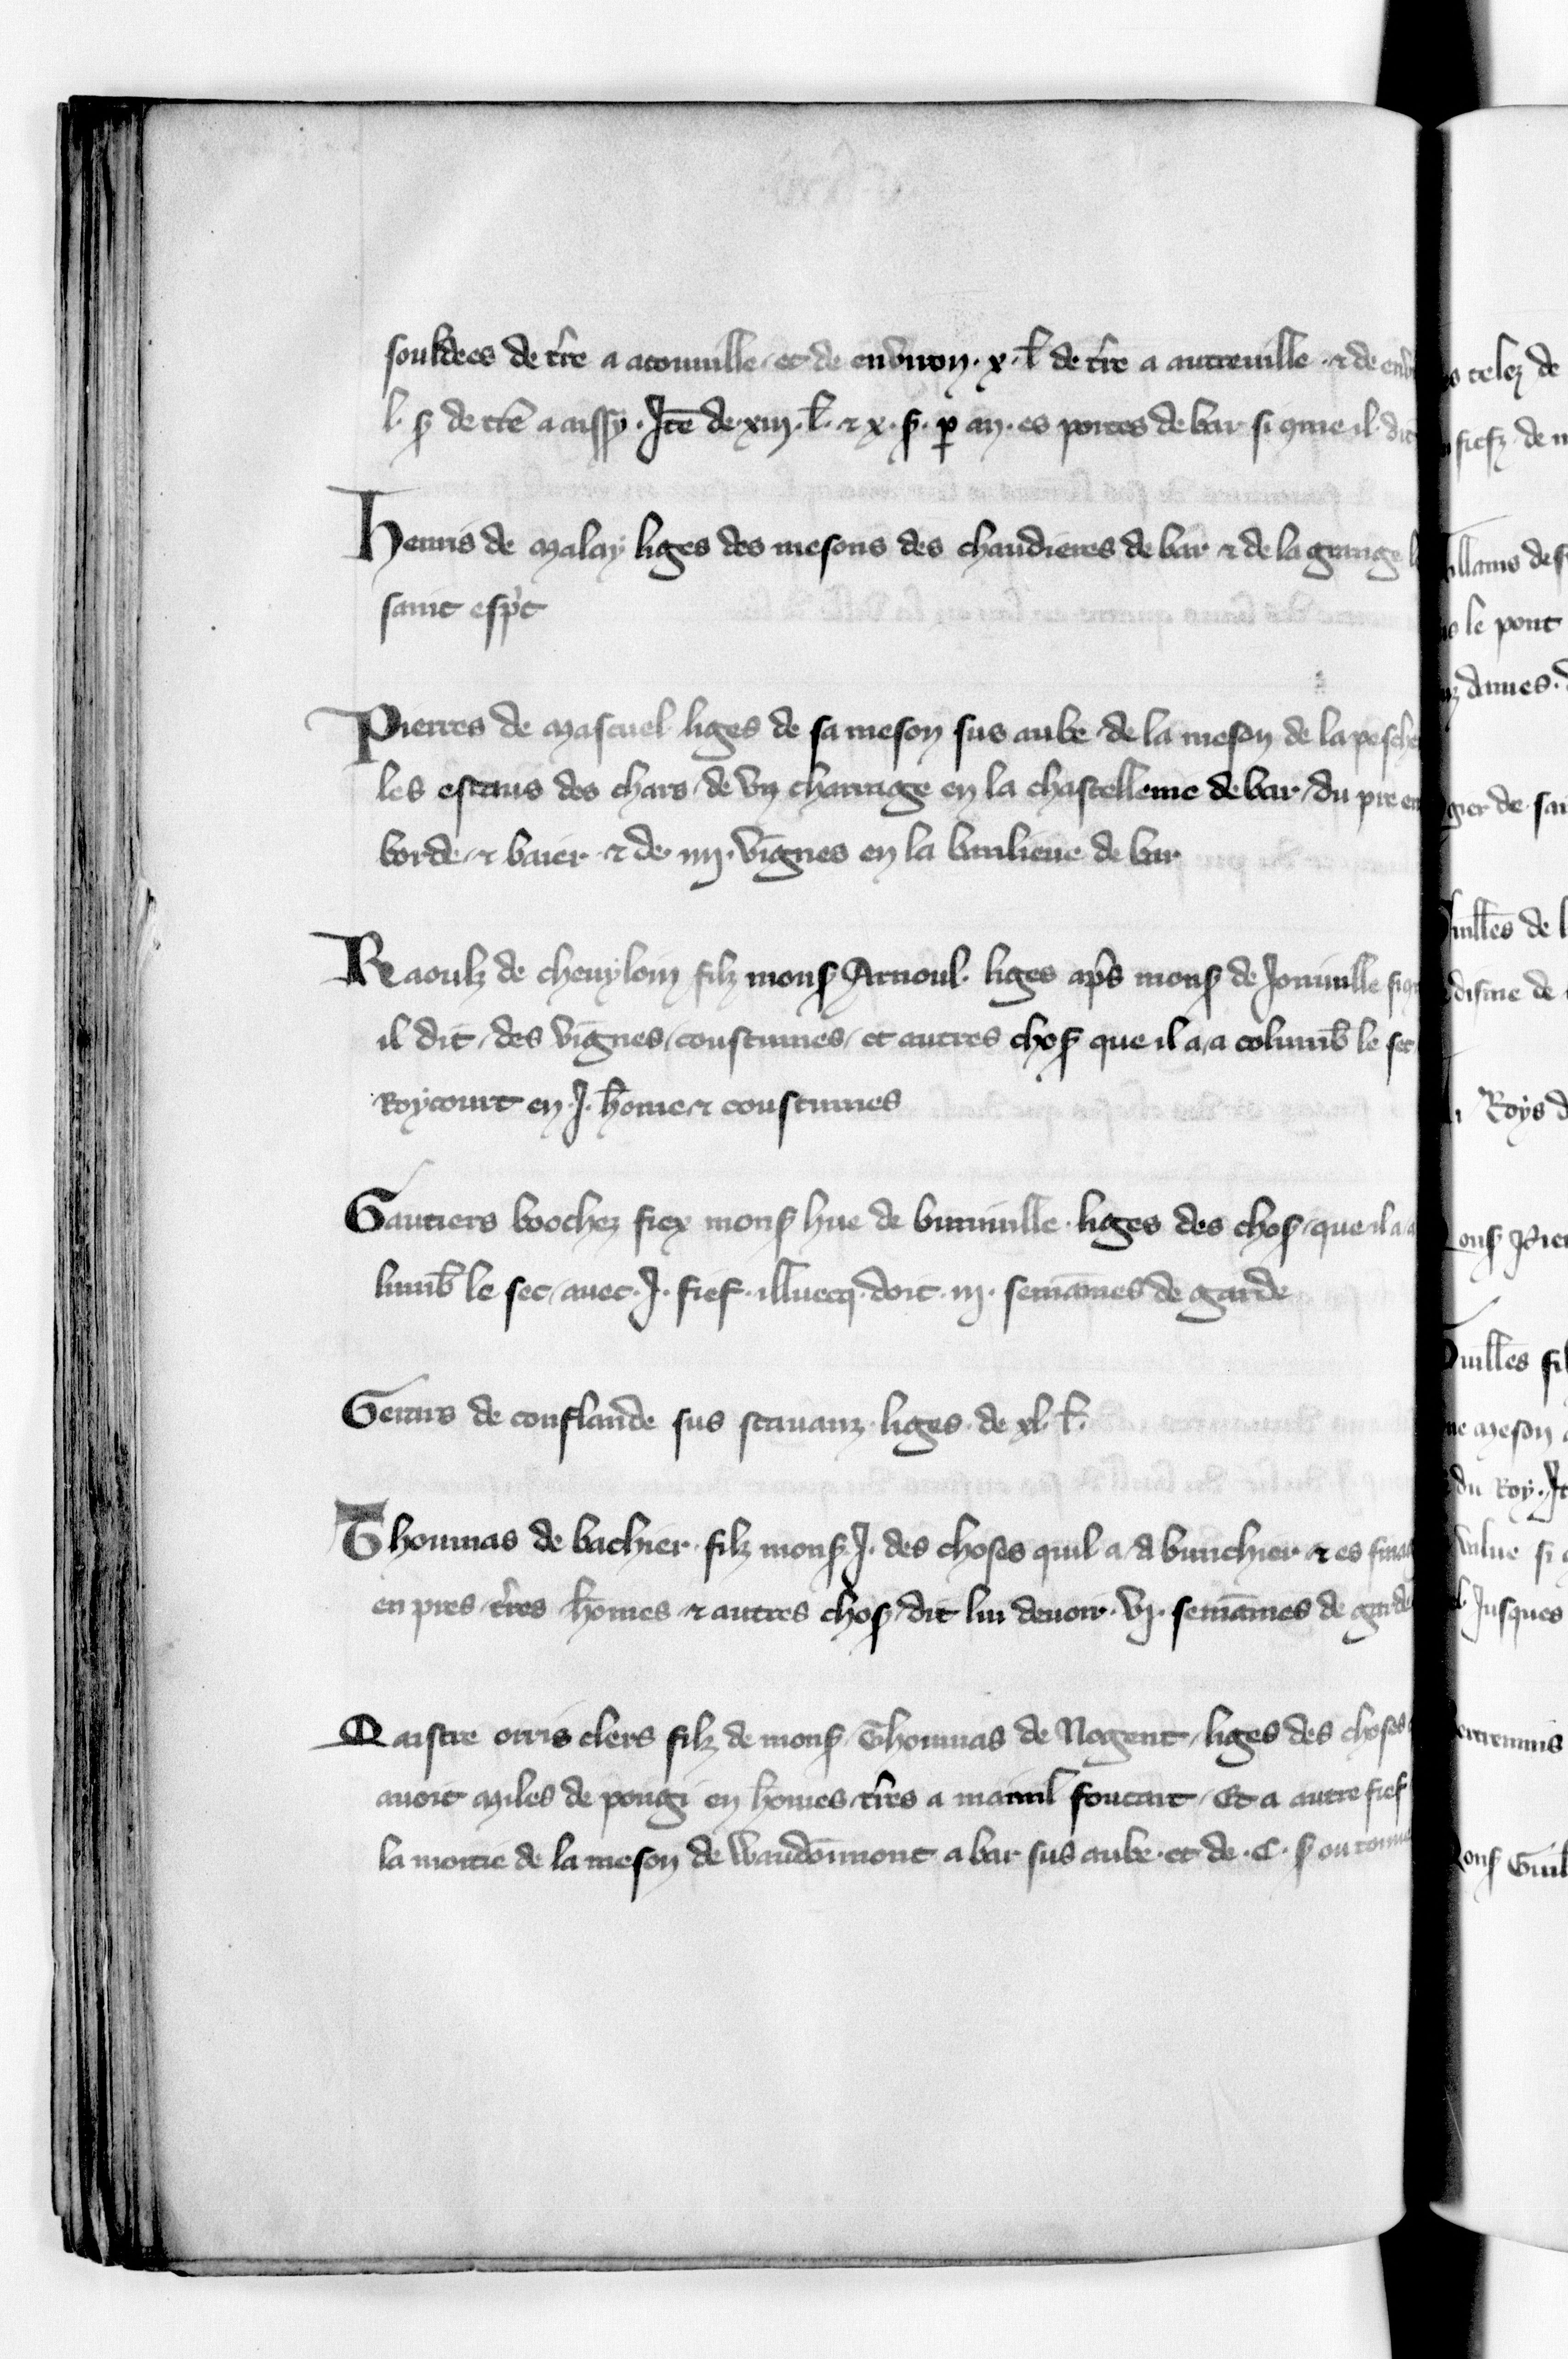 souldees de t̃re a aconuille et de enviroŋ . x . l̃ de t̃re a autreuille . ⁊ de env
l . s̃ de t̃re a aissy . Itẽ de xiij . l̃ . ⁊ x . s̃ . p̱ an . es portes de bar si cõme il dit
Henris de malay liges des mesons des chaudieres de bar ⁊ de la grange
saint esp̃it
Pierres de mascuel liges de sa mesoŋ sus aube de la mesoŋ de la pesche
les estaus des chars / de vŋ charruage eŋ la chastellerie de bar / du pre en
borde ⁊ baier ⁊ de iiij . vignes eŋ la banlieue de bar
Raoulz de cheuyloin filz mons̃ Arnoul . liges ap̃s mons̃ de Joinuille
il dit / des vignes / coustumes / et autres chos̃ que il a / a columb̃ le sec
Roycourt eŋ . J . hom̃e ⁊ coustumes
Gautiers boochez fiex mons̃ hue de buxiuille . liges des chos̃ / que il a
lumb̃ le sec / auec . J . fief . illuecq̃ . doit . iij . semaĩnes de garde
Gerars de conflande sus . liges . de xl . l̃ .
Thoumas de bachier . filz mons̃ . J . des choses quil a / a bunchier ⁊ es finag
en pres t̃res hom̃es ⁊ autres chos̃ / dit lui deuoir . vj . semaĩnes de garde
Maistre orris clers filz de mons̃ Thoumas de Nogent / liges des choses
auoit Miles de pougi eŋ hom̃es t̃res a mainil foucart / Et a autre fief
la moitie de la mesoŋ de Waudoimont a bar sus aube . et de . C . s̃ ou tonne
s telez de
fiefz . de
llams de
le pont
dames .
gier de sai
uill̃es de l
disme de
Roys d
ons̃
uill̃es fil
ne Mesoŋ
du Roy . It
value si
Jusques
ons̃ Guil